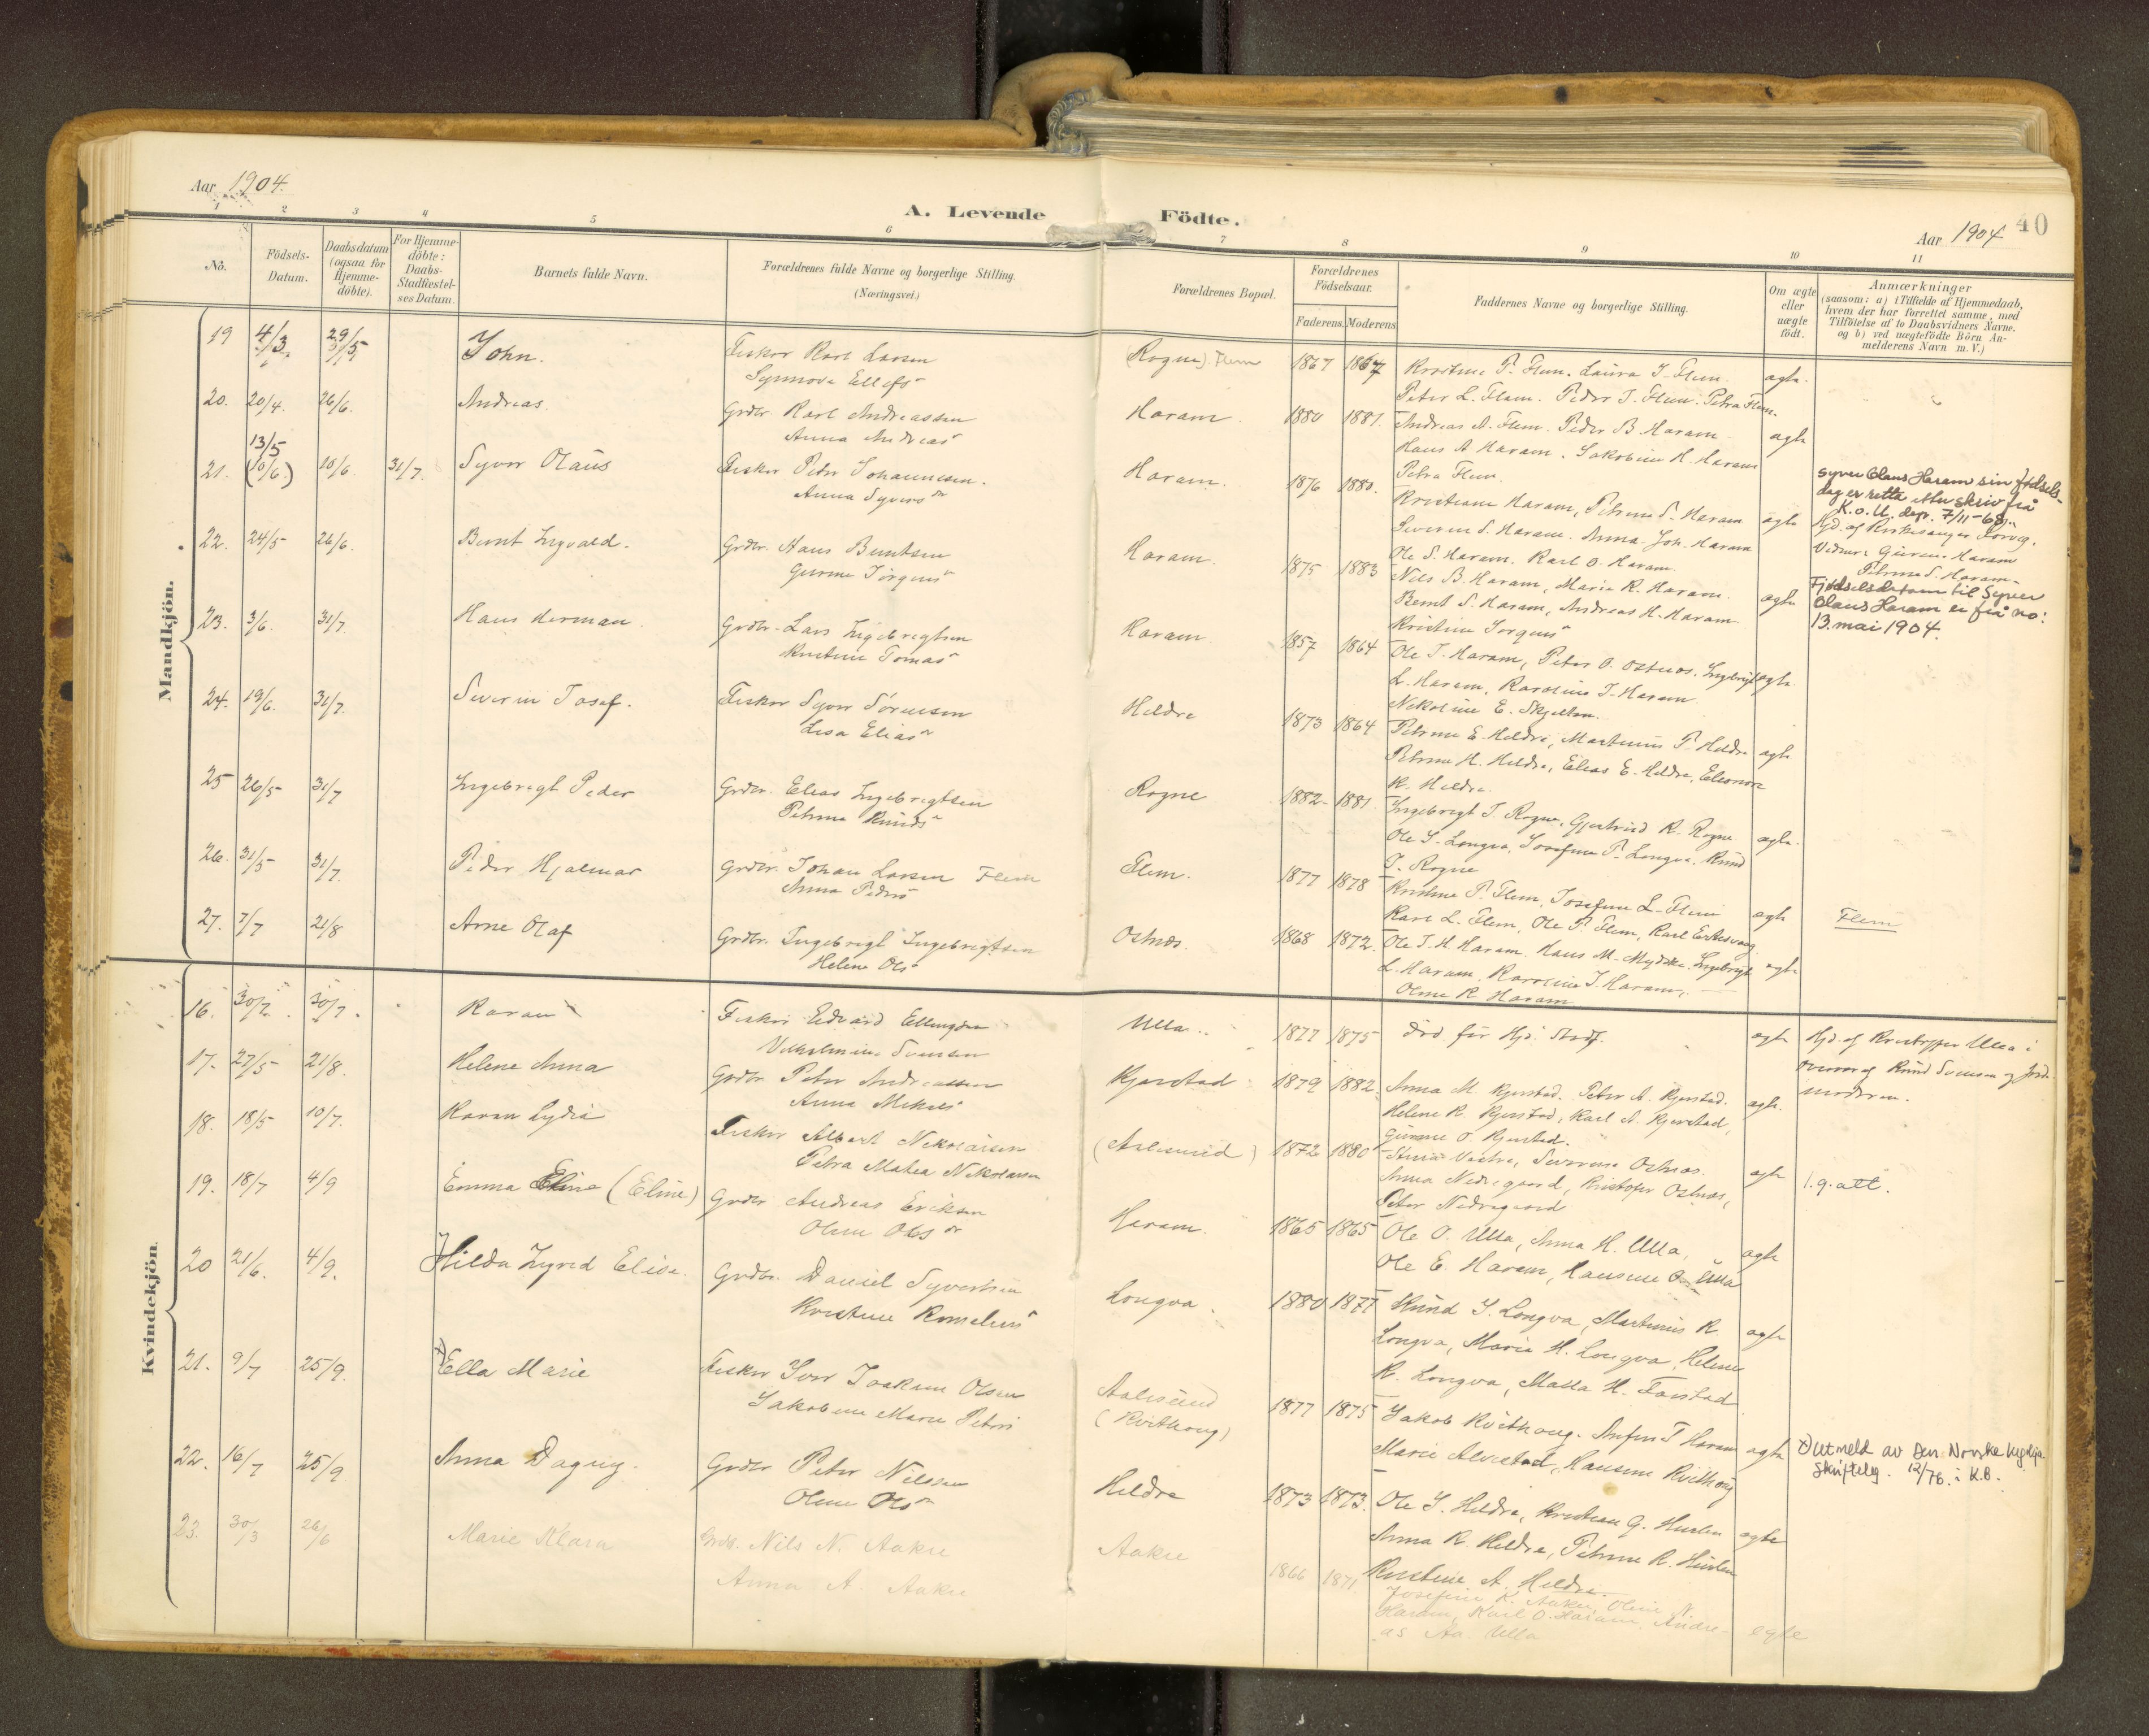 Aar 1904.
A. Levende Födte.
Aar 1904
40
1 2 3 4 5 6 7 8 9 10 11
No.
Födsels-Datum.
Daabsdatum (ogsaa for Hjemme-döbte).
For Hjemme-döbte: Daabs-Stadfæstel-ses Datum.
Barnets fulde Navn.
Forældrenes fulde Navne og borgerlige Stilling.
(Næringsvei.)
Forældrenes Bopæl.
Forældrenes Födselsaar.
Faderens. Moderens.
Faddernes Navne og borgerlige Stilling.
Om ægte eller uægte födt.
Anmærkninger
(saasom: a) i Tilfælde af Hjemmedaab,
hvem der har forrettet samme, med
Tilföielse af to Daabsvidners Navne.
og b) ved uægtefödte Börn An-
melderens Navn m. V.)
Mandkjön.
19 4/3 29/5 John. Fisker Karl Larsen (Rogne). Flem 1867 1867 Kristine P. Flem. Laura J. Flem. ægte.
Synnove Ellefs Peter L. Flem. Peder J. Flem. Petra Flem.
20. 20/4. 26/6. Andreas. Grdbr. Karl Andreassen Haram 1880 1881. Andreas A. Flem. Peder B. Haram ægte
Anna Andreas Hans A Haram. Jakobine H. Haram
Petra Flem.
13/5
21. (10/6.) 10/6. 31/7. Syver Olaus Fisker Peter Johannesen. Haram. 1876 1880. Kristiane Haram, Petrine S. Haram ægte
Anna Syvers dr Severine S. Haram. Anna Joh. Haram
Ole S. Haram. Karl O. Haram.
Syver Olaus Haram sin fødsels-
dag er rettet etter skriv frå
K.o.U. dep. 7/11-68.
Hjd. af Kirkesanger
Vidner: Haram
Petrine S. Haram.
Fødselsdatum til Syver
Olaus Haram er frå no:
13. mai 1904.
22. 24/5 26/6. Bernt Ingvald. Grdbr. Hans Berntsen Haram. 1875 1883 Nils B. Haram, Marie K. Haram. ægte
Bernt S. Haram, Andreas H. Haram
23. 3/6. 31/7. Hans Herman. Grdbr. Lars Ingebregtsen Haram. 1857 1864 Ole J. Haram, Peter O. Ostnes. Ingebrigt ægte
Kristine Tomas L. Haram, Karoline J. Haram
24. 19/6. 31/7. Severin Josef. Fisker Syver Sörensen Hildre 1873 1864 Petrine E. Hildre, Martinus P. Hildre ægte
Lisa Elias Petrine H. Hildre, Elias E. Hildre, Eleonore
K. Hildre.
25 26/5 31/7 Ingebregt Peder Grdbr. Elias Ingebregtsen Rogne 1882. 1881. Ingebregt J. Rogne, Gjertrud K. Rogne ægte.
Petrine Knuds Ole J. Longva, Josefine P. Longva. Knud
J. Rogne
26. 31/5 31/7. Peder Hjalmar Grdbr. Johan Larsen Flem Flem. 1877 1878 Kristine P. Flem, Josefine L. Flem ægte Flem
Anna Peders Karl L. Flem, Ole P. Flem, Karl
27. 7/7 21/8 Arne Olaf Grdbr. Ingebrigt Ingebrigtsen Ostnes. 1868 1872. Ole J. H. Haram, Hans M. Ingebrigt ægte
Helene Ols L. Haram, Karoline J. Haram,
Oline K. Haram
Kvindekjön.
16. 30/7. 30/7. Karen Fisker Edvard Ellingsen Ulla 1877 1875 död för Hj. Stadf. ægte Hjd. af Kristoffer Ulla i
Vilhelmine Svensen Knud Svensen og Jord-
moderen.
17. 27/5 21/8. Helene Anna Grdbr. Peter Andreassen Kjerstad 1879 1882. Anna M. Kjerstad. Peter A. Kjerstad. ægte.
Anna Mikals Helene K. Kjerstad, Karl A. Kjerstad,
18. 18/5 10/7. Karen Lydia Fisker Albert Nekolaisen (Aalesund) 1872 1880 Severine Ostnes. ægte 1.9.att.
Petra Matea Nikolaisen Anna Nedregaard, Kristofer Ostnes,
Peter Nedregaard
19. 18/7 4/9 Emma Eline (Eline) Grdbr Andreas Eriksen Haram. 1865 1865 Ole O. Ulla, Anna H. Ulla, ægte
Oline Ols dr Ole E. Haram, Hansine O. Ulla
20 21/6. 4/9. Hilda Ingrid Elise. Grdbr. Daniel Syvertsen Longva. 1880 1877 Knud J. Longva, Martinus K. ægte
Kristine Kornelius Longva, Marie H. Longva, Helene
K. Longva, Malla H. Farstad
21. 9/7 25/9. Ella Marie Fisker Iver Joakim Olsen Aalesund 1877 1875 Jakob Kvithaug. J. Haram ægte
Jakobine Marie Peters (Kvithaug) Marie Alvestad, Hansine Kvithaug
x) utmeld av Den Norske kyrkja
skrifteleg. 12/76. i K.B.
22. 16/7 25/9 Anna Dagny. Grdbr Peter Nilssen Hildre 1873 1873. Ole J. Hildre, Kristian G. Huslen ægte
Oline Ols Anna K. Hildre, Petrine K. Huslen
Kristine A. Hildre.
23. 30/3 26/6 Marie Klara Grdb. Nils N. Aakre Aakre 1866 1871. Josefine K. Aakre, Oline N. egte
Anna A. Aakre Haram, Karl O. Haram, Andre-
as Aa. Ulla